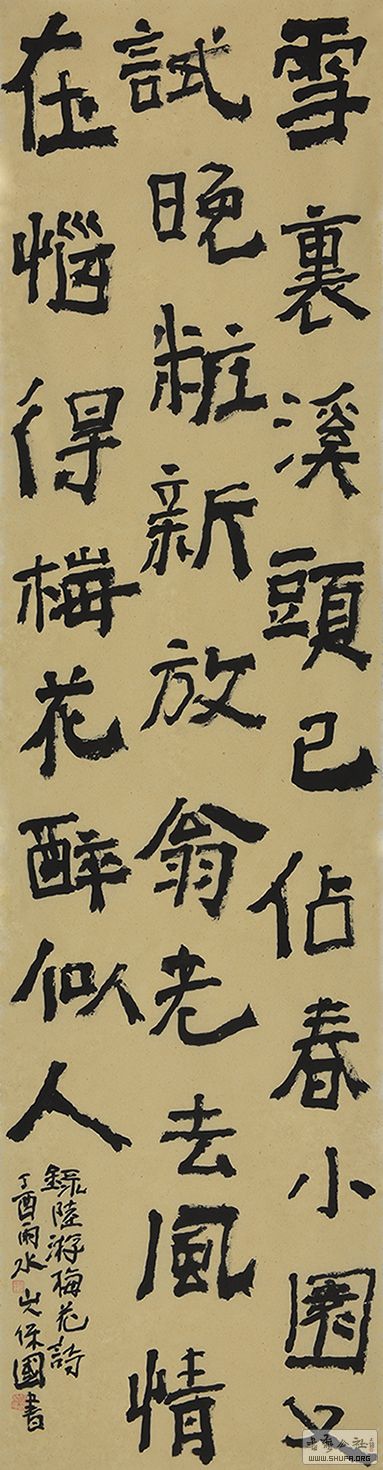 雪裏溪頭已佔春小園又
試晚粧新放翁老去風情
在惱得梅花醉似人
録陸游梅花詩
丁酉雨水 保國書
書法公社
WWW.SHUFA.ORG